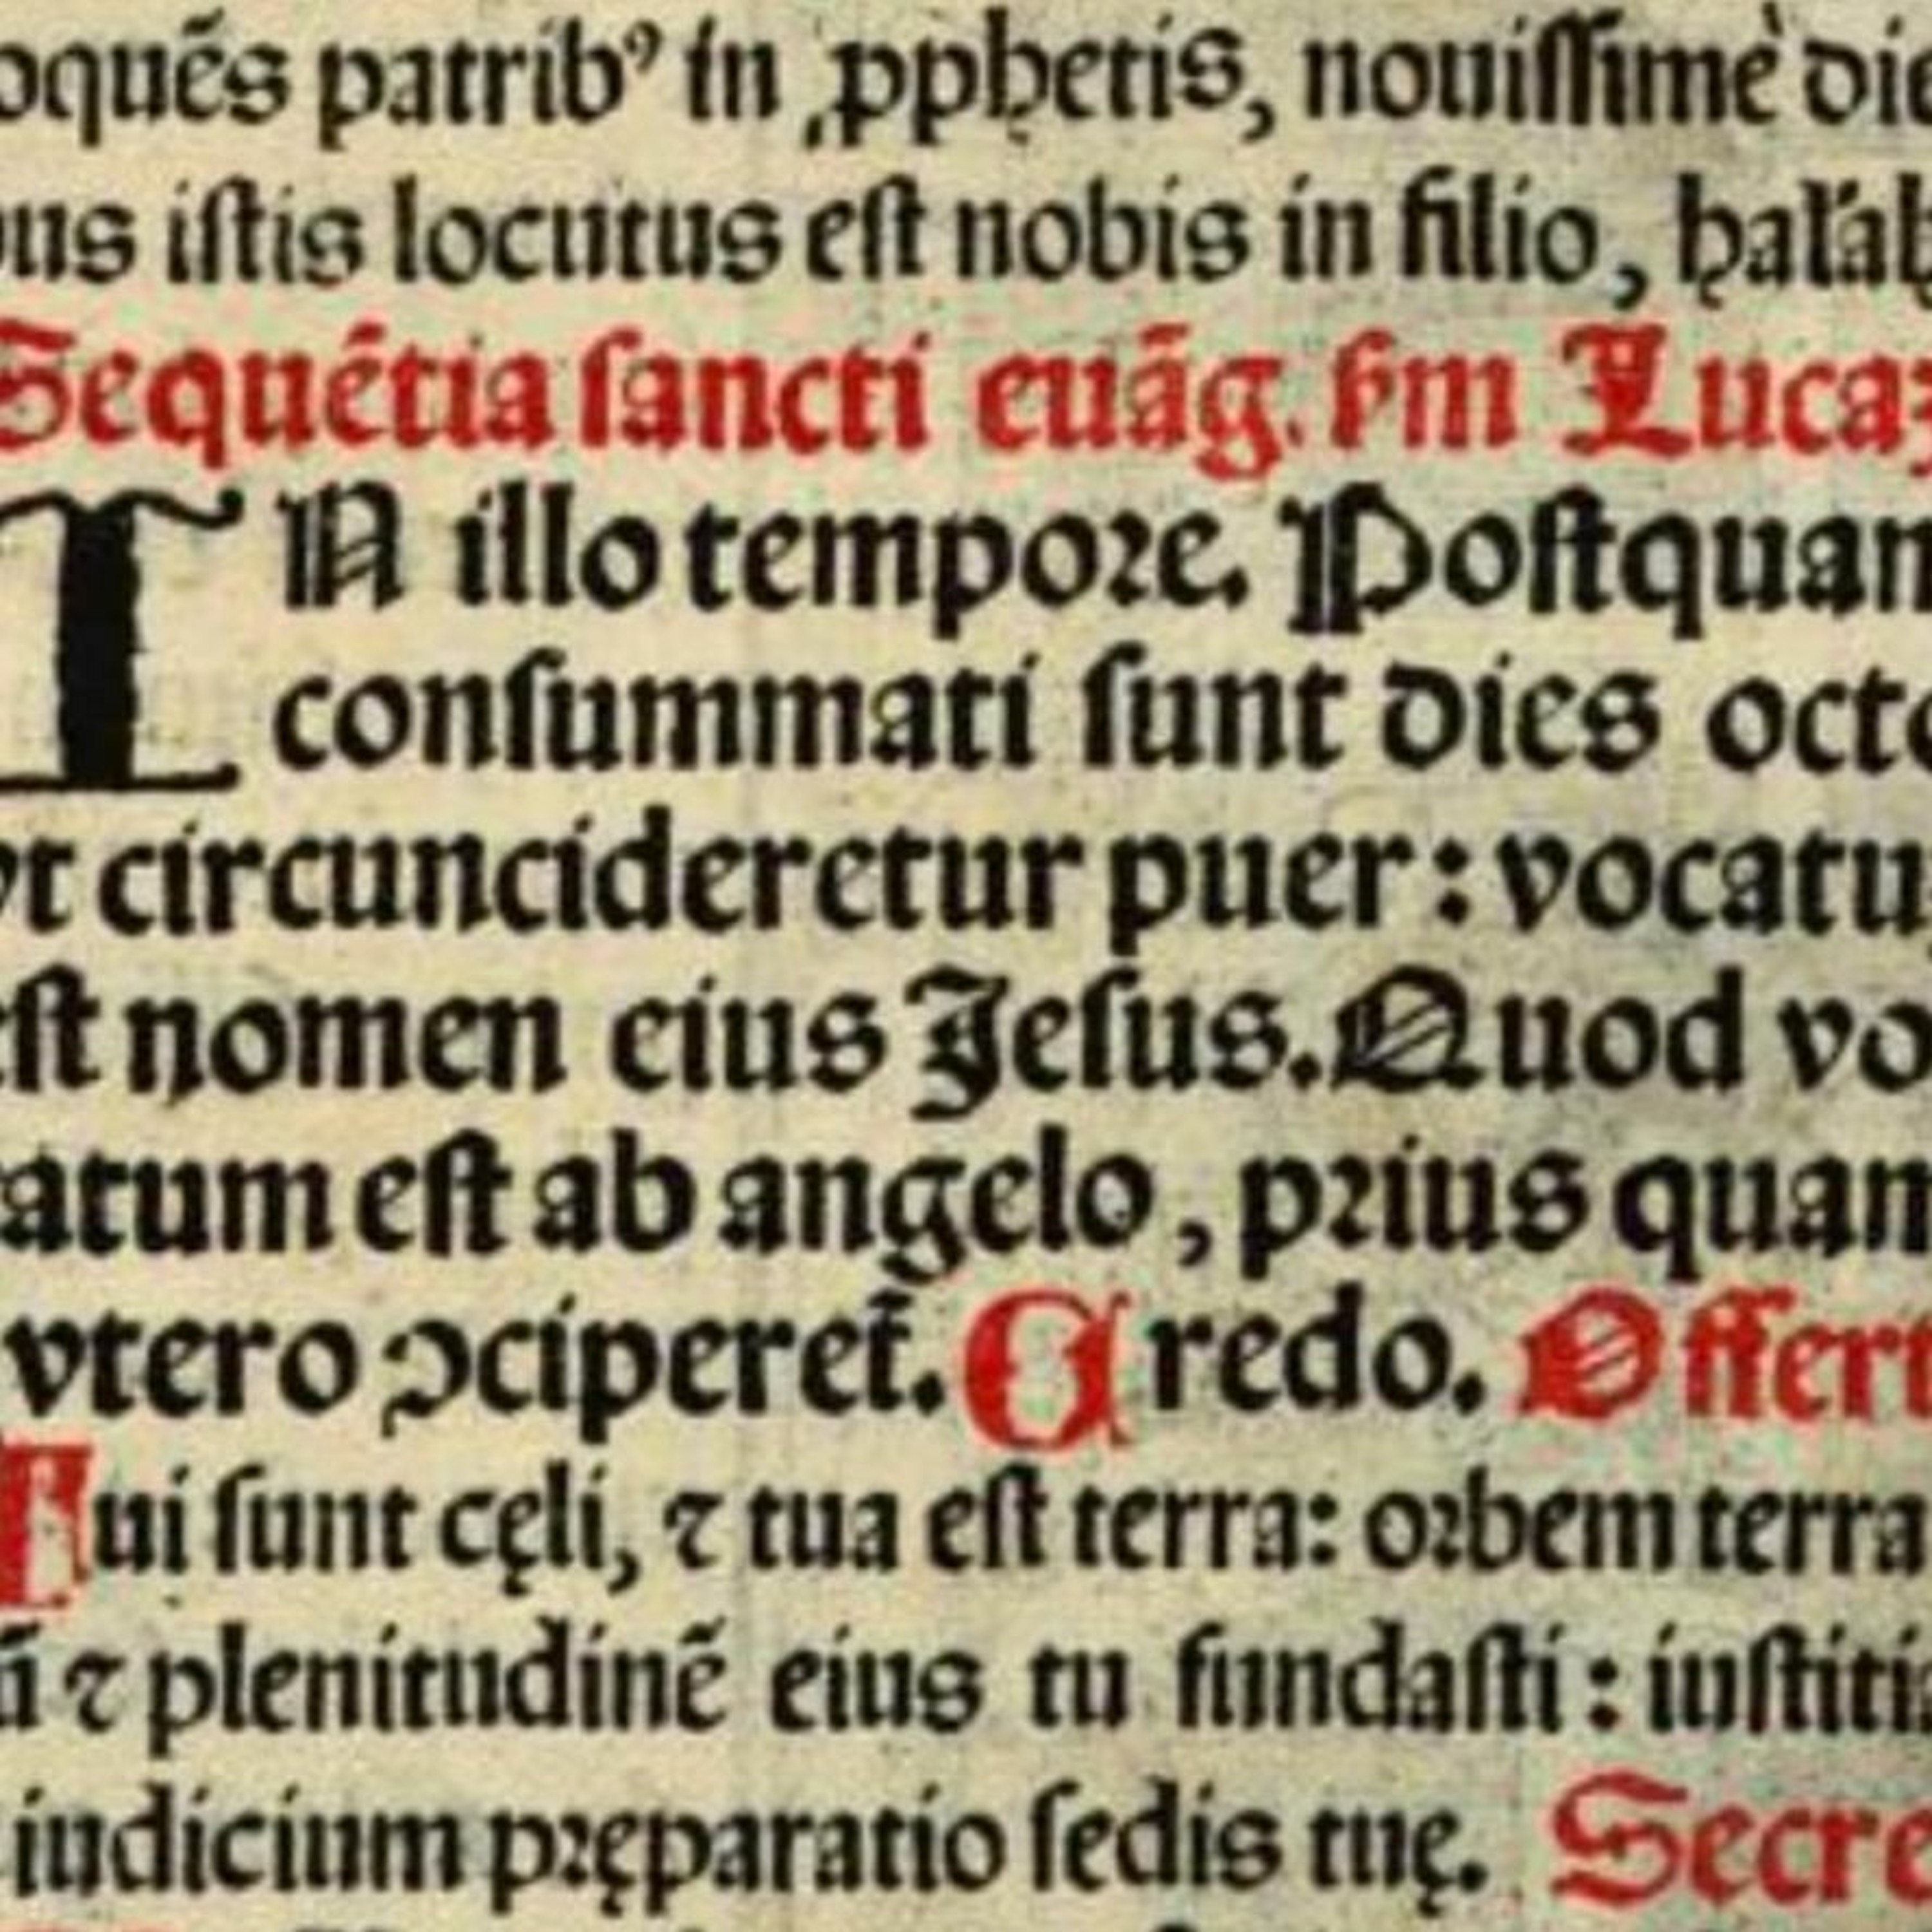 oquẽs patribꝰ in ꝓphetis, nouiſſimè die
bus iſtis locutus eſt nobis in filio, hal'al
Sequẽtia ſancti euãg. ẜm Lucaʒ
IN illo tempoꝛe. Poſtquam
conſummati ſunt dies octo
vt circuncideretur puer: vocatu
eſt nomen eius Jeſus. Quod vo
catum eſt ab angelo, pꝛius quam
vtero ↄciperet̃. Credo. Offert
Tui ſunt cęli, ⁊ tua eſt terra: oꝛbem terra
ũ ⁊ plenitudinẽ eius tu fundaſti: iuſtitia
iudicium pꝛęparatio ſedis tuę. Secre